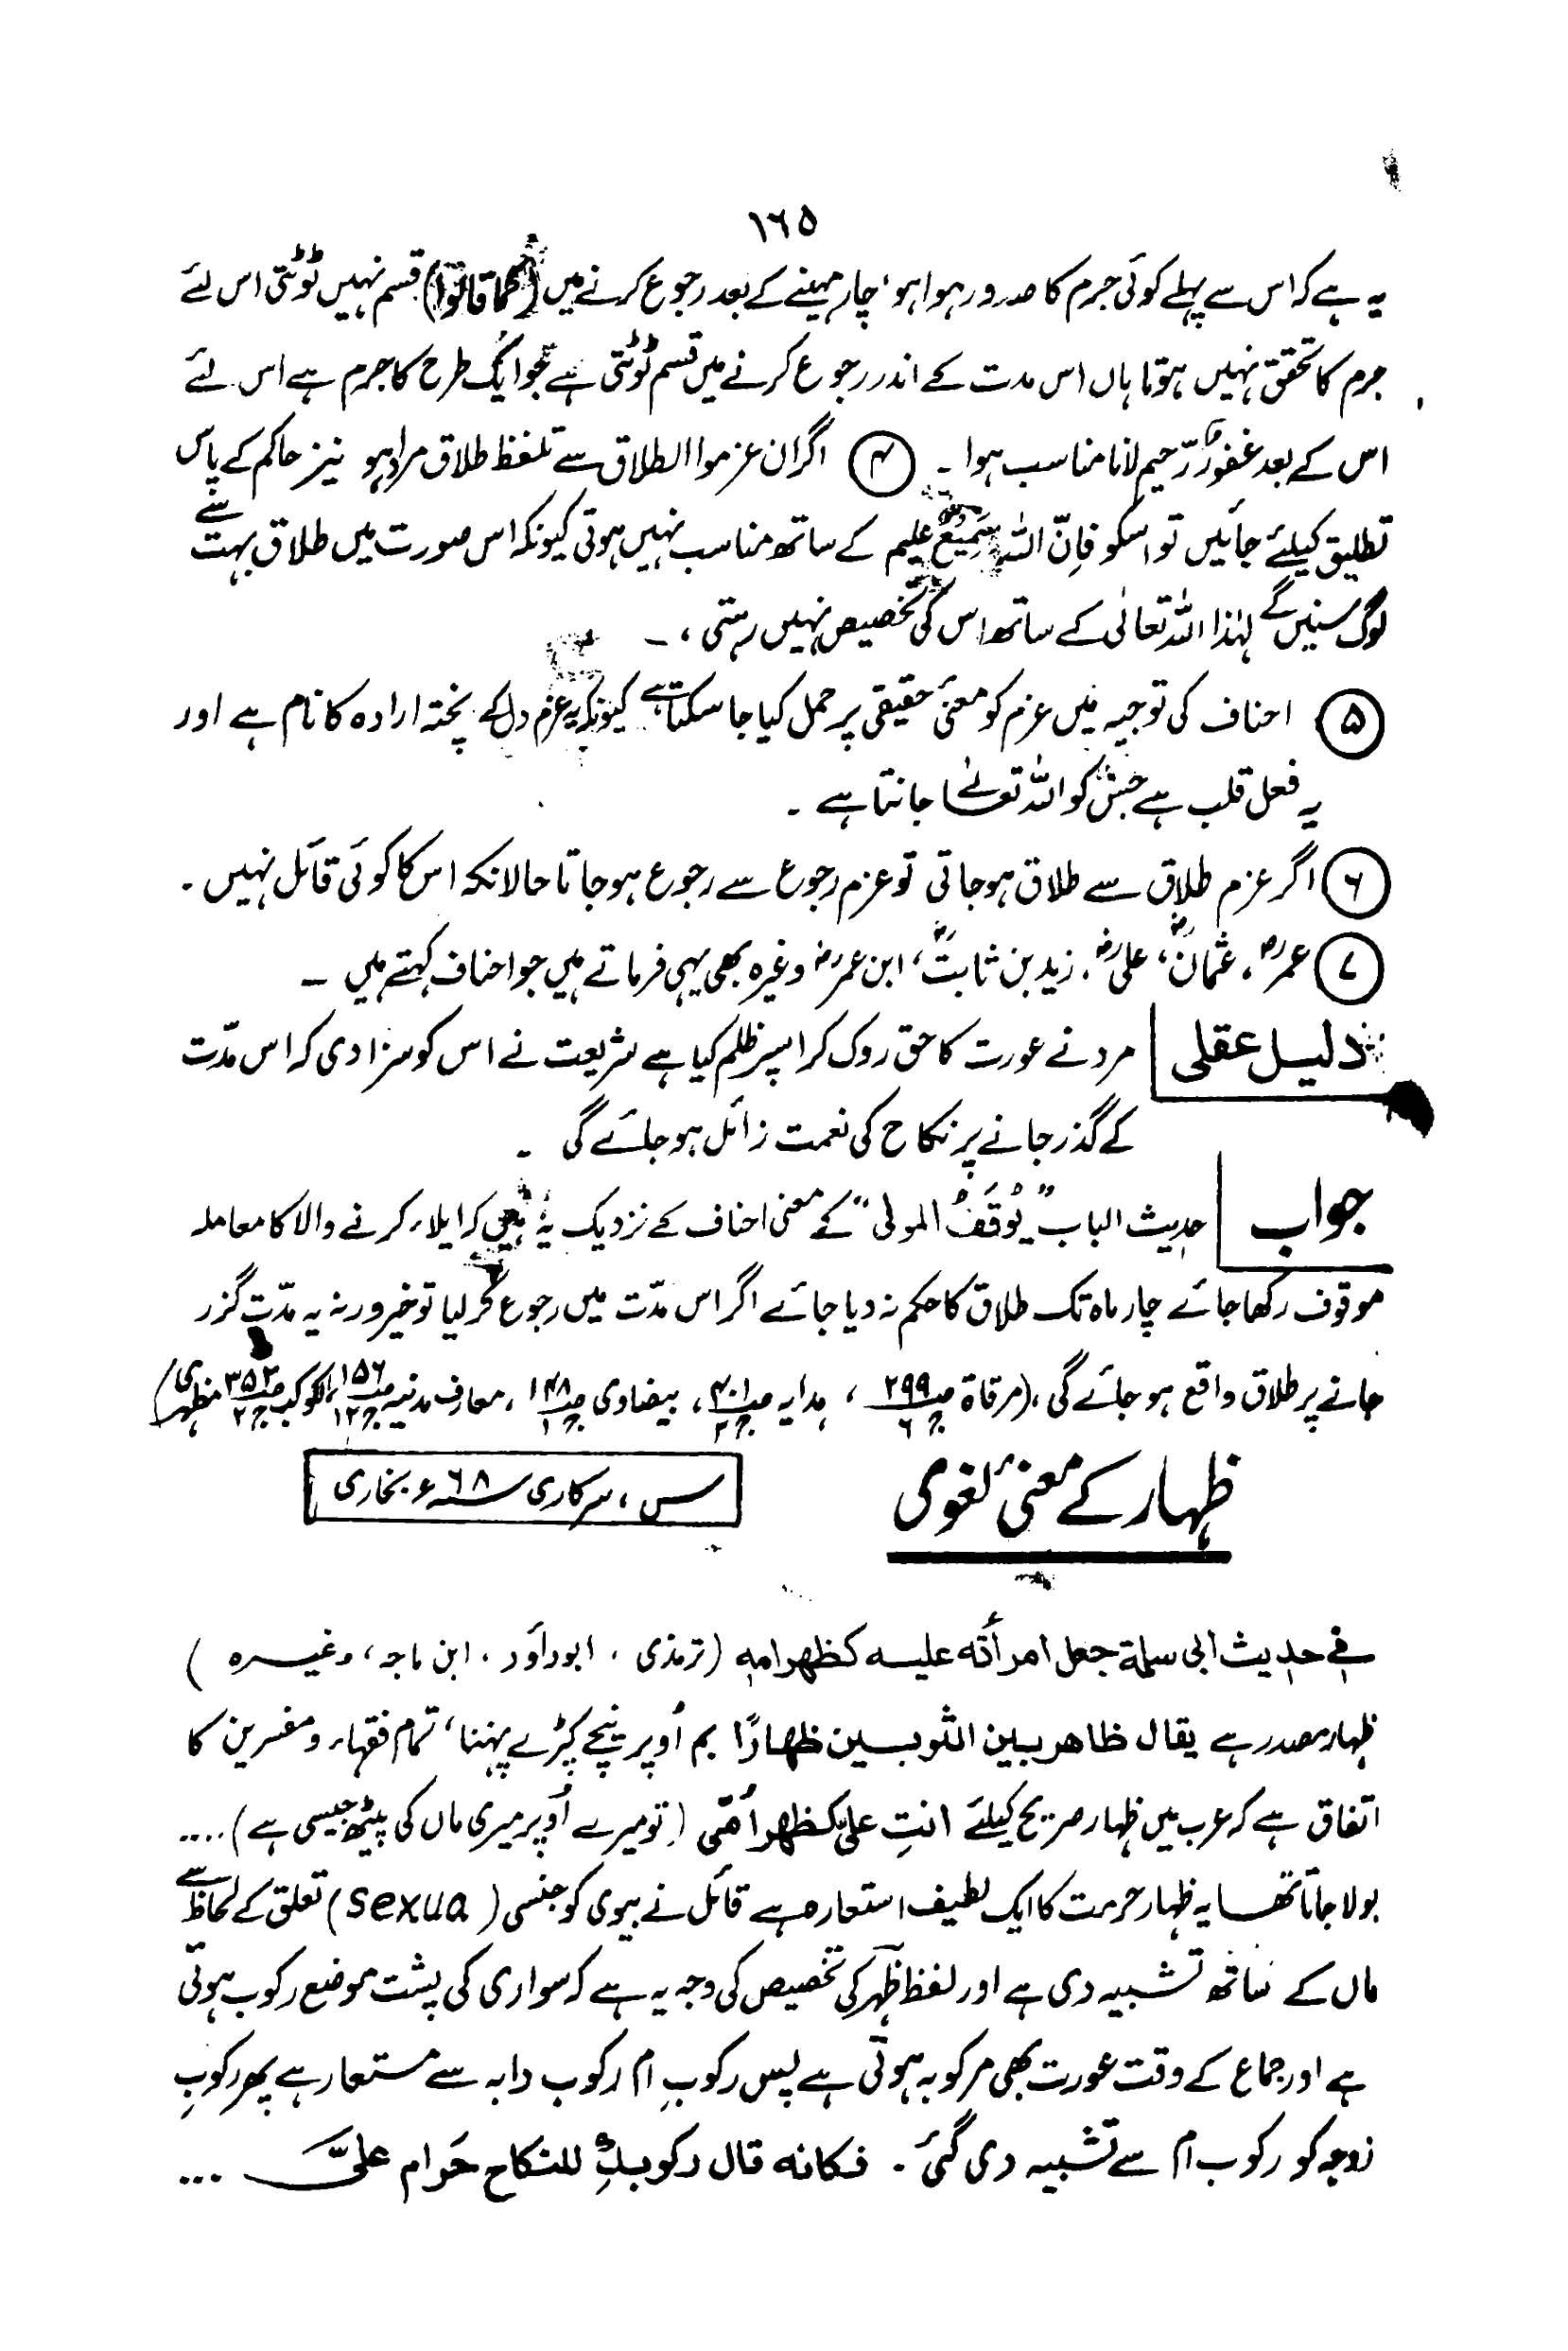 ۱۶۵
یہ ہے کہ اس سے پہلے کوئی جرم کا صدور ہوا ہو، چار مہینے کے بعد رجوع کرنے میں (کما قالوا) قسم نہیں ٹوٹتی اس لئے
جرم کا تحقق نہیں ہوتا ہاں اس مدت کے اندر رجوع کرنے میں قسم ٹوٹتی ہے جو ایک طرح کا جرم ہے اس لئے
اس کے بعد غفورٌ رّحیم لانا مناسب ہوا ۔ (۴) اگر ان عزموا الطلاق سے تلفظ طلاق مراد ہو نیز حاکم کے پاس
تطلیق کیلئے جائیں تو اسکو فاِنّ اللہ سَمِیعٌ علیم کے ساتھ مناسب نہیں ہوتی کیونکہ اس صورت میں طلاق بہت سے
لوگ سنیں گے لہٰذا اللہ تعالٰی کے ساتھ اس کی تخصیص نہیں رہتی، ۔
(۵) احناف کی توجیہ میں عزم کو معنیٰ حقیقی پر حمل کیا جا سکتا ہے کیونکہ یہ عزم دل کے پختہ ارادہ کا نام ہے اور
یہ فعل قلب ہے جس کو اللہ تعالےٰ جانتا ہے ۔
(۶) اگر عزم طلاق سے طلاق ہو جاتی تو عزم رجوع سے رجوع ہو جاتا حالانکہ اس کا کوئی قائل نہیں ۔
(۷) عمرؓ، عثمانؓ، علیؓ، زید بن ثابتؓ، ابن عمرؓ وغیرہ بھی یہی فرماتے ہیں جو احناف کہتے ہیں ۔
دلیل عقلی | مرد نے عورت کا حق روک کر اسپر ظلم کیا ہے شریعت نے اس کو سزا دی کہ اس مدّت
کے گذر جانے پر نکاح کی نعمت زائل ہو جائے گی ۔
جواب | حدیث الباب "یُوْقَفُ المولی" کے معنی احناف کے نزدیک یہ ہیں کہ ایلاء کرنے والا کا معاملہ
موقوف رکھا جائے چار ماہ تک طلاق کا حکم نہ دیا جائے اگر اس مدّت میں رجوع کر لیا تو خیر ورنہ یہ مدّت گزر
جانے پر طلاق واقع ہو جائے گی، (مرقاۃ ص۲۹۹ ج۶، ہدایہ ص۴۰۱ ج۲، بیضاوی ص۱۴۸ ج۱، معارف مدنیہ ص۱۵۶ ج۱۲، الکوکب ص۳۵۲ ج۲، مظہری)
ظہار کے معنیٰ لغوی
س، سرکاری سنہ ۶۸ء بخاری
فے حدیث ابی سلمة جعل امرأته علیه کظهر امه (ترمذی، ابوداؤد، ابن ماجہ، وغیرہ)
ظہار مصدر ہے یقال ظاهر بین الثوبین ظهارًا بم اُوپر نیچے کپڑے پہننا، تمام فقہاء ومفسرین کا
اتفاق ہے کہ عرب میں ظہار صریح کیلئے انتِ علیّ کظهر اُمّی (تو میرے اُوپر میری ماں کی پیٹھ جیسی ہے) ....
بولا جاتا تھا یہ ظہار حرمت کا ایک لطیف استعارہ ہے قائل نے بیوی کو جنسی (Sexua) تعلق کے لحاظ سے
ماں کے ساتھ تشبیہ دی ہے اور لفظ ظہر کی تخصیص کی وجہ یہ ہے کہ سواری کی پشت موضع رکوب ہوتی
ہے اور جماع کے وقت عورت بھی مرکوبہ ہوتی ہے پس رکوبِ ام رکوب دابہ سے مستعار ہے پھر رکوبِ
زوجہ کو رکوب ام سے تشبیہ دی گئی ۔ فکانه قال رکوبكِ للنکاح حَرام علیَّ ...